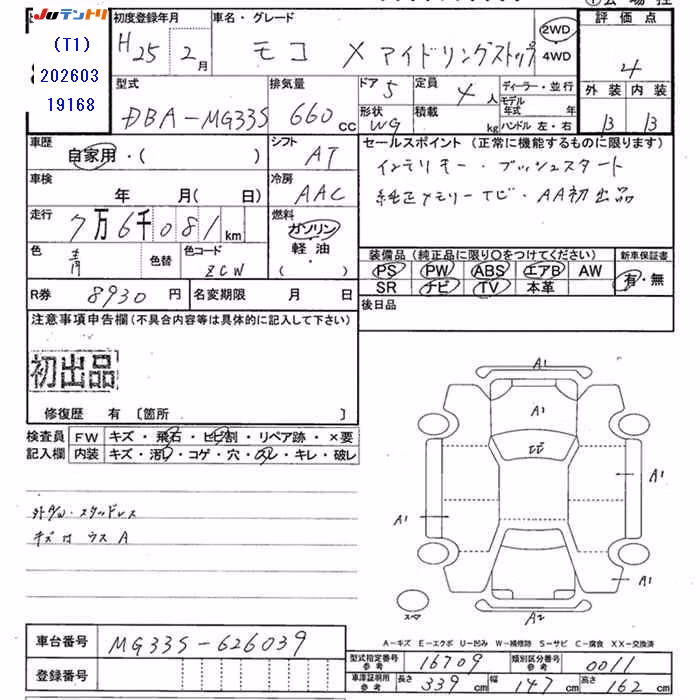 Juテントリ
(T1)
202603
19168
初度登録年月
H25年 2月
車名・グレード
モコ X アイドリングストップ
2WD
4WD
評価点
4
外装 内装
B B
型式
DBA-MG33S
排気量
660 cc
ドア
5
定員
4 人
形状
WG
積載
kg
ディーラー・並行
モデル年式 年
ハンドル 左・右
車歴
自家用・( )
シフト
AT
車検
年 月( 日)
冷房
AAC
走行
7万6千081 km
燃料
ガソリン
軽油
・( )
色
青
色替
色コード
ZCW
R券
8930 円
名変期限 月 日
セールスポイント (正常に機能するものに限ります)
インテリキー・プッシュスタート
純正メモリーナビ・AA初出品
装備品 (純正品に限り〇をつけてください)
PS PW ABS エアB AW
SR ナビ TV 本革
新車保証書
有・無
後日品
注意事項申告欄 (不具合内容等は具体的に記入して下さい)
初出品
修復歴 有 [箇所 ]
検査員
記入欄
FW キズ・飛石・ヒビ割・リペア跡・×要
内装 キズ・汚れ・コゲ・穴・スレ・キレ・破レ
スタッドレス
キズ ウス A
A1
A1
A1
A1
A1
A2
スペア
A-キズ E-エクボ U-凹み W-補修跡 S-サビ C-腐食 XX-交換済
車台番号
MG33S-626039
登録番号
型式指定番号 参考
16709
類別区分番号 参考
0011
車庫証明用 参考
長さ 339 cm 幅 147 cm 高さ 162 cm